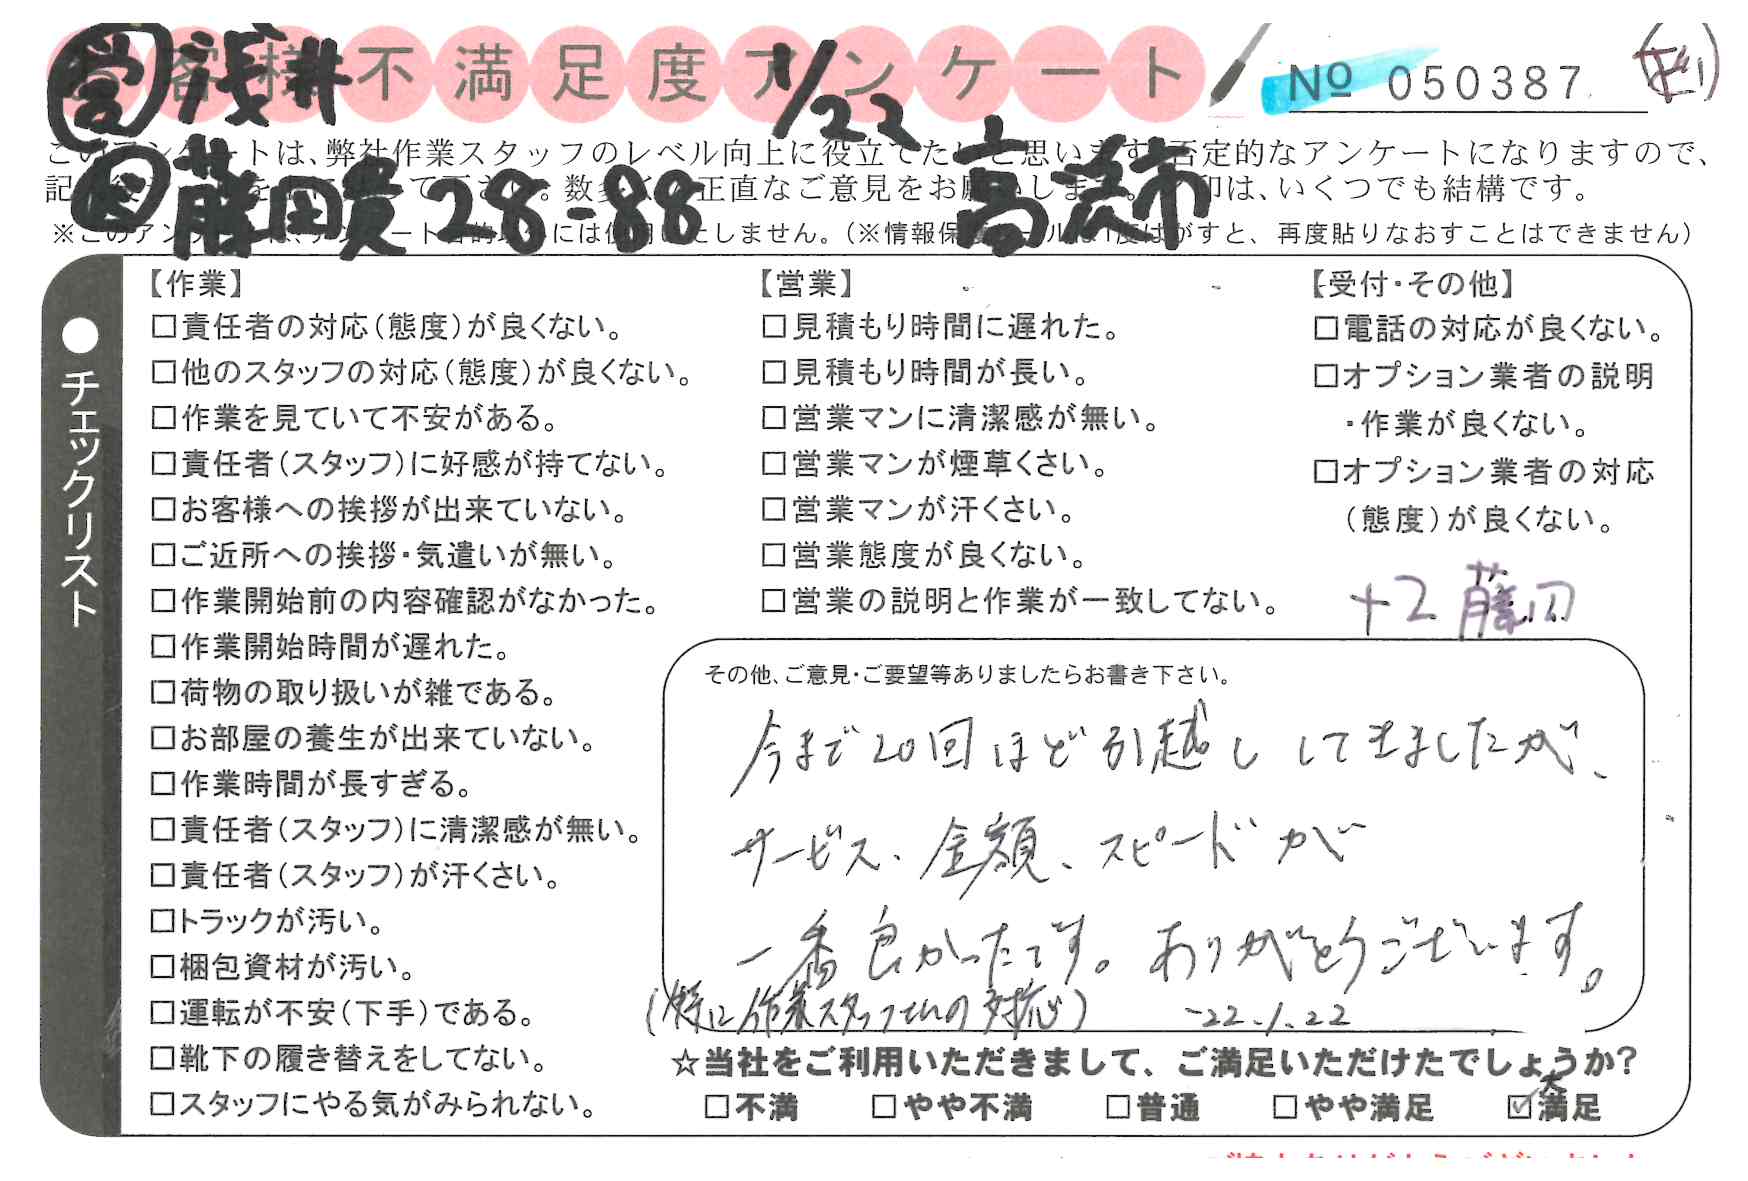 お客様不満足度アンケート
営 浅井 1/22
№ 050387
このアンケートは、弊社作業スタッフのレベル向上に役立てたいと思います。否定的なアンケートになりますので、
数多くの正直なご意見をお願いします。 印は、いくつでも結構です。
藤田貴 28-88 高 市
※このアンケートは、アンケート目的以外には使用いたしません。(※情報保護シールは1度はがすと、再度貼りなおすことはできません)
●チェックリスト
【作業】
□責任者の対応(態度)が良くない。
□他のスタッフの対応(態度)が良くない。
□作業を見ていて不安がある。
□責任者(スタッフ)に好感が持てない。
□お客様への挨拶が出来ていない。
□ご近所への挨拶・気遣いが無い。
□作業開始前の内容確認がなかった。
□作業開始時間が遅れた。
□荷物の取り扱いが雑である。
□お部屋の養生が出来ていない。
□作業時間が長すぎる。
□責任者(スタッフ)に清潔感が無い。
□責任者(スタッフ)が汗くさい。
□トラックが汚い。
□梱包資材が汚い。
□運転が不安(下手)である。
□靴下の履き替えをしてない。
□スタッフにやる気がみられない。
【営業】
□見積もり時間に遅れた。
□見積もり時間が長い。
□営業マンに清潔感が無い。
□営業マンが煙草くさい。
□営業マンが汗くさい。
□営業態度が良くない。
□営業の説明と作業が一致してない。
【受付・その他】
□電話の対応が良くない。
□オプション業者の説明
・作業が良くない。
□オプション業者の対応
(態度)が良くない。
+2 藤田
その他、ご意見・ご要望等ありましたらお書き下さい。
今まで20回ほど引越ししてきましたが、
サービス、金額、スピードが
一番良かったです。ありがとうございます。
(特に作業スタッフさんの対応) -22.1.22
☆当社をご利用いただきまして、ご満足いただけたでしょうか?
□不満 □やや不満 □普通 □やや満足 ☑大満足